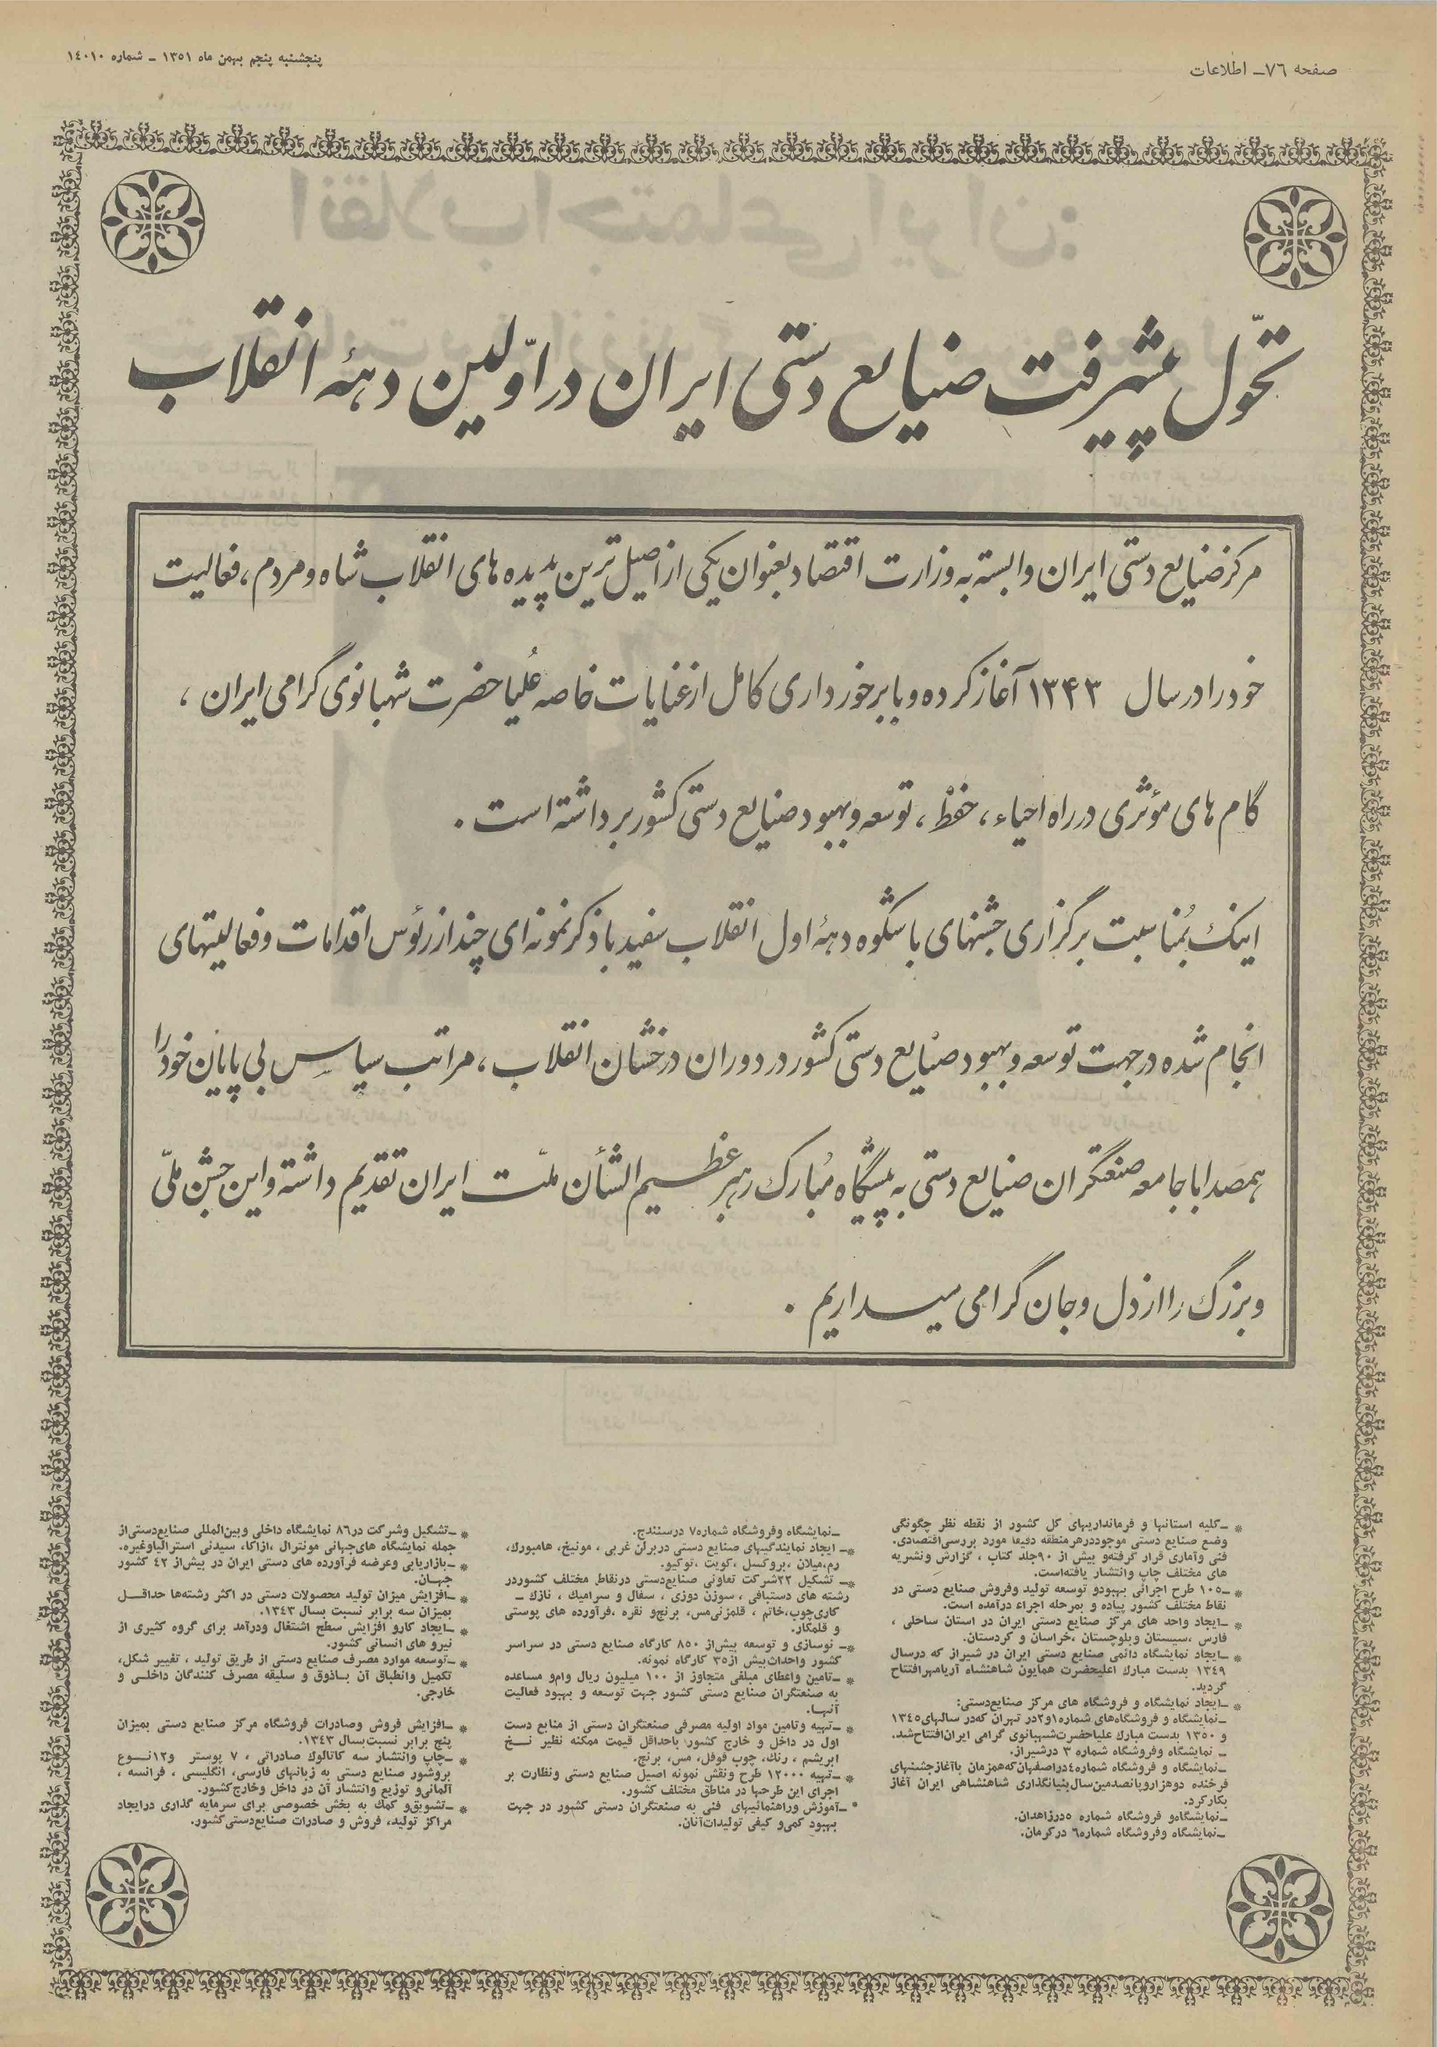 صفحه ٧٦ـ اطلاعات
پنجشنبه پنجم بهمن ماه ١٣٥١ ـ شماره ١٤٠١٠
تحوّل پیشرفت صنایع دستی ایران در اوّلین دههٔ انقلاب
مرکز صنایع دستی ایران وابسته به وزارت اقتصاد بعنوان یکی از اصیل ترین پدیده های انقلاب شاه و مردم ، فعالیت
خود را در سال ۱۳۴۳ آغاز کرده و با برخورداری کامل از عنایات خاصه عُلیا حضرت شهبانوی گرامی ایران ،
گام های مؤثری در راه احیاء ، حفظ ، توسعه و بهبود صنایع دستی کشور برداشته است .
اینک بمُناسبت برگزاری جشنهای با شکوه دههٔ اول انقلاب سفید با ذکر نمونه ای چند از رئوس اقدامات و فعالیتهای
انجام شده در جهت توسعه و بهبود صنایع دستی کشور در دوران درخشان انقلاب ، مراتب سپاس بی پایان خود را
همصدا با جامعه صنعتگران صنایع دستی به پیشگاه مُبارک رهبر عظیم الشأن ملّت ایران تقدیم داشته و این جشن ملّی
و بزرگ را از دل و جان گرامی میداریم .
* ـ کلیه استانها و فرمانداریهای کل کشور از نقطه نظر چگونگی
وضع صنایع دستی موجود در هر منطقه دقیقا مورد بررسی اقتصادی،
فنی و آماری قرار گرفته و بیش از ٩٠ جلد کتاب ، گزارش و نشریه
های مختلف چاپ و انتشار یافته است.
* ـ ١٠٥ طرح اجرائی بهبود و توسعه تولید و فروش صنایع دستی در
نقاط مختلف کشور پیاده و بمرحله اجراء درآمده است.
* ـ ایجاد واحد های مرکز صنایع دستی ایران در استان ساحلی ،
فارس ، سیستان و بلوچستان ، خراسان و کردستان.
* ـ ایجاد نمایشگاه دائمی صنایع دستی ایران در شیراز که در سال
١٣٤٩ بدست مبارك اعلیحضرت همایون شاهنشاه آریامهر افتتاح
گردید.
* ـ ایجاد نمایشگاه و فروشگاه های مرکز صنایع دستی:
ـ نمایشگاه و فروشگاه‌های شماره ١ و ٢ در تهران که در سالهای ١٣٤٥
و ١٣٥٠ بدست مبارك علیاحضرت شهبانوی گرامی ایران افتتاح شد.
ـ نمایشگاه و فروشگاه شماره ٣ در شیراز.
ـ نمایشگاه و فروشگاه شماره ٤ در اصفهان که همزمان با آغاز جشنهای
فرخنده دو هزار و پانصدمین سال بنیانگذاری شاهنشاهی ایران آغاز
بکار کرد.
ـ نمایشگاه و فروشگاه شماره ٥ در زاهدان.
ـ نمایشگاه و فروشگاه شماره ٦ در کرمان.
ـ نمایشگاه و فروشگاه شماره ٧ در سنندج.
* ـ ایجاد نمایندگیهای صنایع دستی در برلن غربی ، مونیخ، هامبورك،
رم، میلان ، بروکسل ، کویت ، توکیو.
* ـ تشکیل ٢٢ شرکت تعاونی صنایع دستی در نقاط مختلف کشور در
رشته های دستبافی ، سوزن دوزی ، سفال و سرامیك ، نازك ـ
کاری چوب، خاتم ، قلمزنی مس، برنج و نقره ، فرآورده های پوستی
و قلمکار.
* ـ نوسازی و توسعه بیش از ٨٥٠ کارگاه صنایع دستی در سراسر
کشور و احداث بیش از ٣٥ کارگاه نمونه.
* ـ تامین و اعطای مبلغی متجاوز از ١٠٠ میلیون ریال وام و مساعده
به صنعتگران صنایع دستی کشور جهت توسعه و بهبود فعالیت
آنها.
* ـ تهیه و تامین مواد اولیه مصرفی صنعتگران دستی از منابع دست
اول در داخل و خارج کشور، با حداقل قیمت ممکنه نظیر نخ
ابریشم ، رنك، چوب فوفل، مس، برنج.
* ـ تهیه ١٢٠٠٠ طرح و نقش نمونه اصیل صنایع دستی و نظارت بر
اجرای این طرحها در مناطق مختلف کشور.
* ـ آموزش و راهنمائیهای فنی به صنعتگران دستی کشور در جهت
بهبود کمی و کیفی تولیدات آنان.
* ـ تشکیل و شرکت در ٨٦ نمایشگاه داخلی و بین‌المللی صنایع دستی از
جمله نمایشگاه های جهانی مونترال ، ازاکا، سیدنی استرالیا و غیره.
* ـ بازاریابی و عرضه فرآورده های دستی ایران در بیش از ٤٢ کشور
جهان.
* ـ افزایش میزان تولید محصولات دستی در اکثر رشته‌ها حداقل
بمیزان سه برابر نسبت بسال ١٣٤٣.
* ـ ایجاد کار و افزایش سطح اشتغال و درآمد برای گروه کثیری از
نیرو های انسانی کشور.
* ـ توسعه موارد مصرف صنایع دستی از طریق تولید ، تغییر شکل،
تکمیل و انطباق آن با ذوق و سلیقه مصرف کنندگان داخلی و
خارجی.
* ـ افزایش فروش و صادرات فروشگاه مرکز صنایع دستی بمیزان
پنج برابر نسبت بسال ١٣٤٣.
* ـ چاپ و انتشار سه کاتالوك صادراتی ، ٧ پوستر و ١٢ نوع
بروشور صنایع دستی به زبانهای فارسی، انگلیسی ، فرانسه ،
آلمانی و توزیع و انتشار آن در داخل و خارج کشور.
* ـ تشویق و کمك به بخش خصوصی برای سرمایه گذاری در ایجاد
مراکز تولید، فروش و صادرات صنایع دستی کشور.